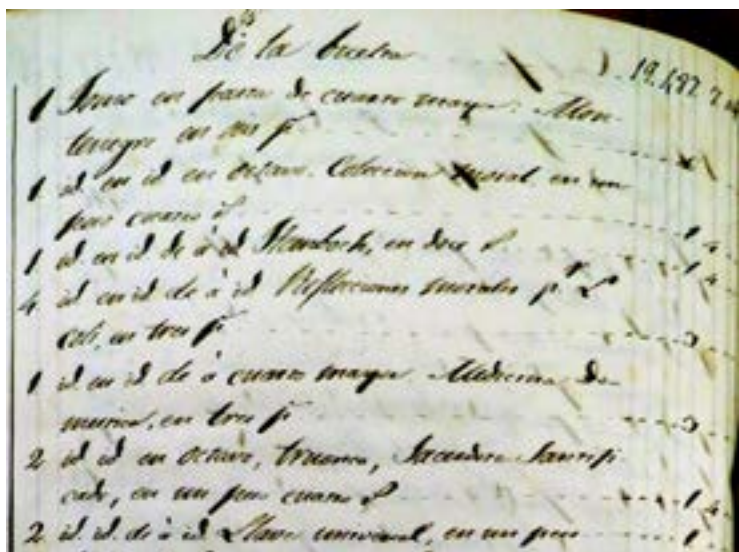 De la buelta 19.482 2
1 Tomo en pasta de cuarto mayor. Mon-
tenegro en seis ps 6
1 id. en id en octavo. Coleccion moral, en un
peso cuatro rs 1 4
1 id en id de à id en doce rs 1 4
4 id en id de à id Reflecciones morales pr
en tres ps 3
1 id en id de à cuarto mayor. Medicina Do-
mestica, en tres ps 3
2 id id en octavo, Sacerdote Santifi
cado, en un peso cuatro rs 1 4
2 id. id. de à id Llave universal, en un peso 1